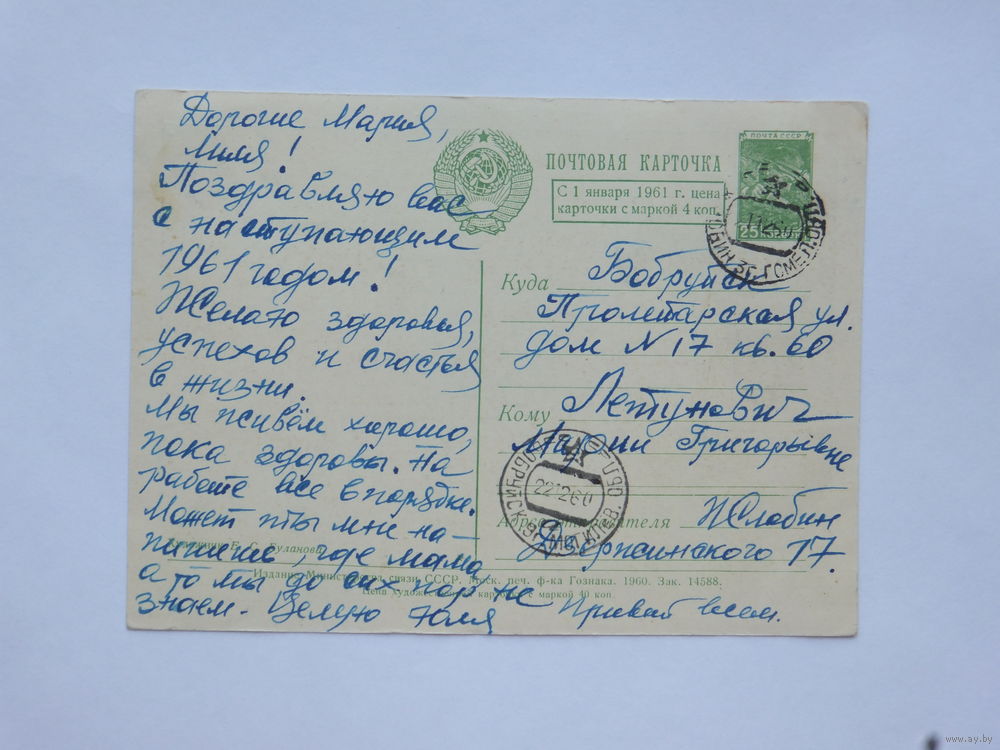 Дорогие Мария,
Миля!
Поздравляю вас
с наступающим
1961 годом!
Желаю здоровья,
успехов и счастья
в жизни.
Мы живём хорошо,
пока здоровы. На
работе все в порядке.
Может ты мне на-
пишешь, где мама,
а то мы до сих пор не
знаем. Целую Юля
Привет всем.
ПОЧТОВАЯ КАРТОЧКА
С 1 января 1961 г. цена
карточки с маркой 4 коп.
ПОЧТА СССР
25 КОПЕЕК
Куда Бобруйск
Пролетарская ул.
дом N 17 кв. 60
Кому Летунович
Марии Григорьвне
Адрес отправителя Жлобин
Дзержинского 17.
БОБРУЙСК
22 12 60
Художник Е. С. Буланова
Издание Министерства связи СССР. Моск. печ. ф-ка Гознака. 1960. Зак. 14588.
Цена художественной карточки с маркой 40 коп.
www.ay.by